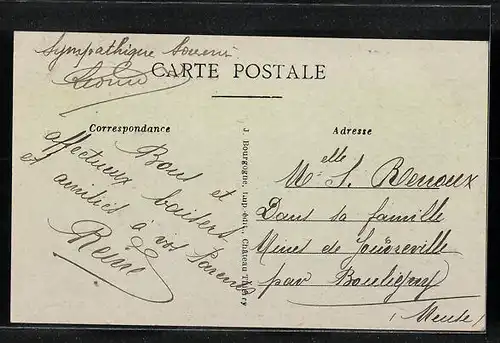 Sympathique Souvenir
CARTE POSTALE
Correspondance
Adresse
Bons et
affectueux baisers
et amitiés à vos Parents
Reine
J. Bourgogne, Imp.-édit., Château Thierry
Melle S. Renoux
Dans sa famille
Mines de Joudreville
par Bouligny
(Meuse)